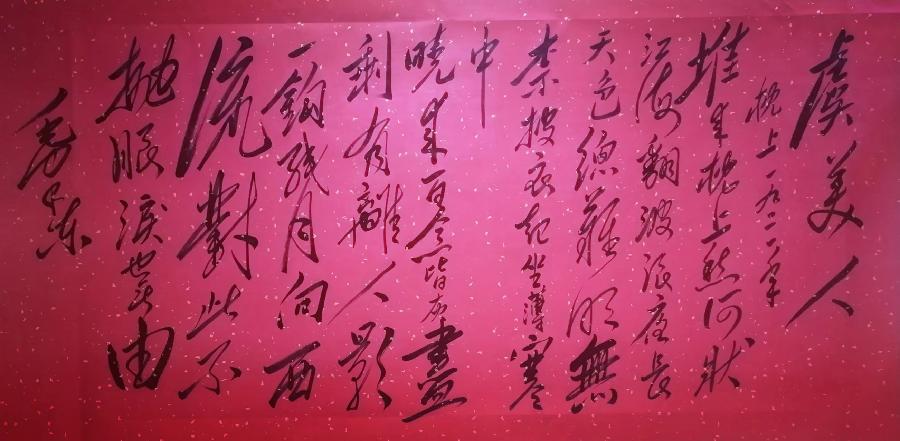 虞美人
枕上一九二一年
堆来枕上愁何状
江海翻波浪夜长
天色總難明無
柰披衣起坐薄寒
中
晓来百念皆灰盡
剩有離人影
一鈎残月向西
流對此不
抛眼淚也無由
毛泽东